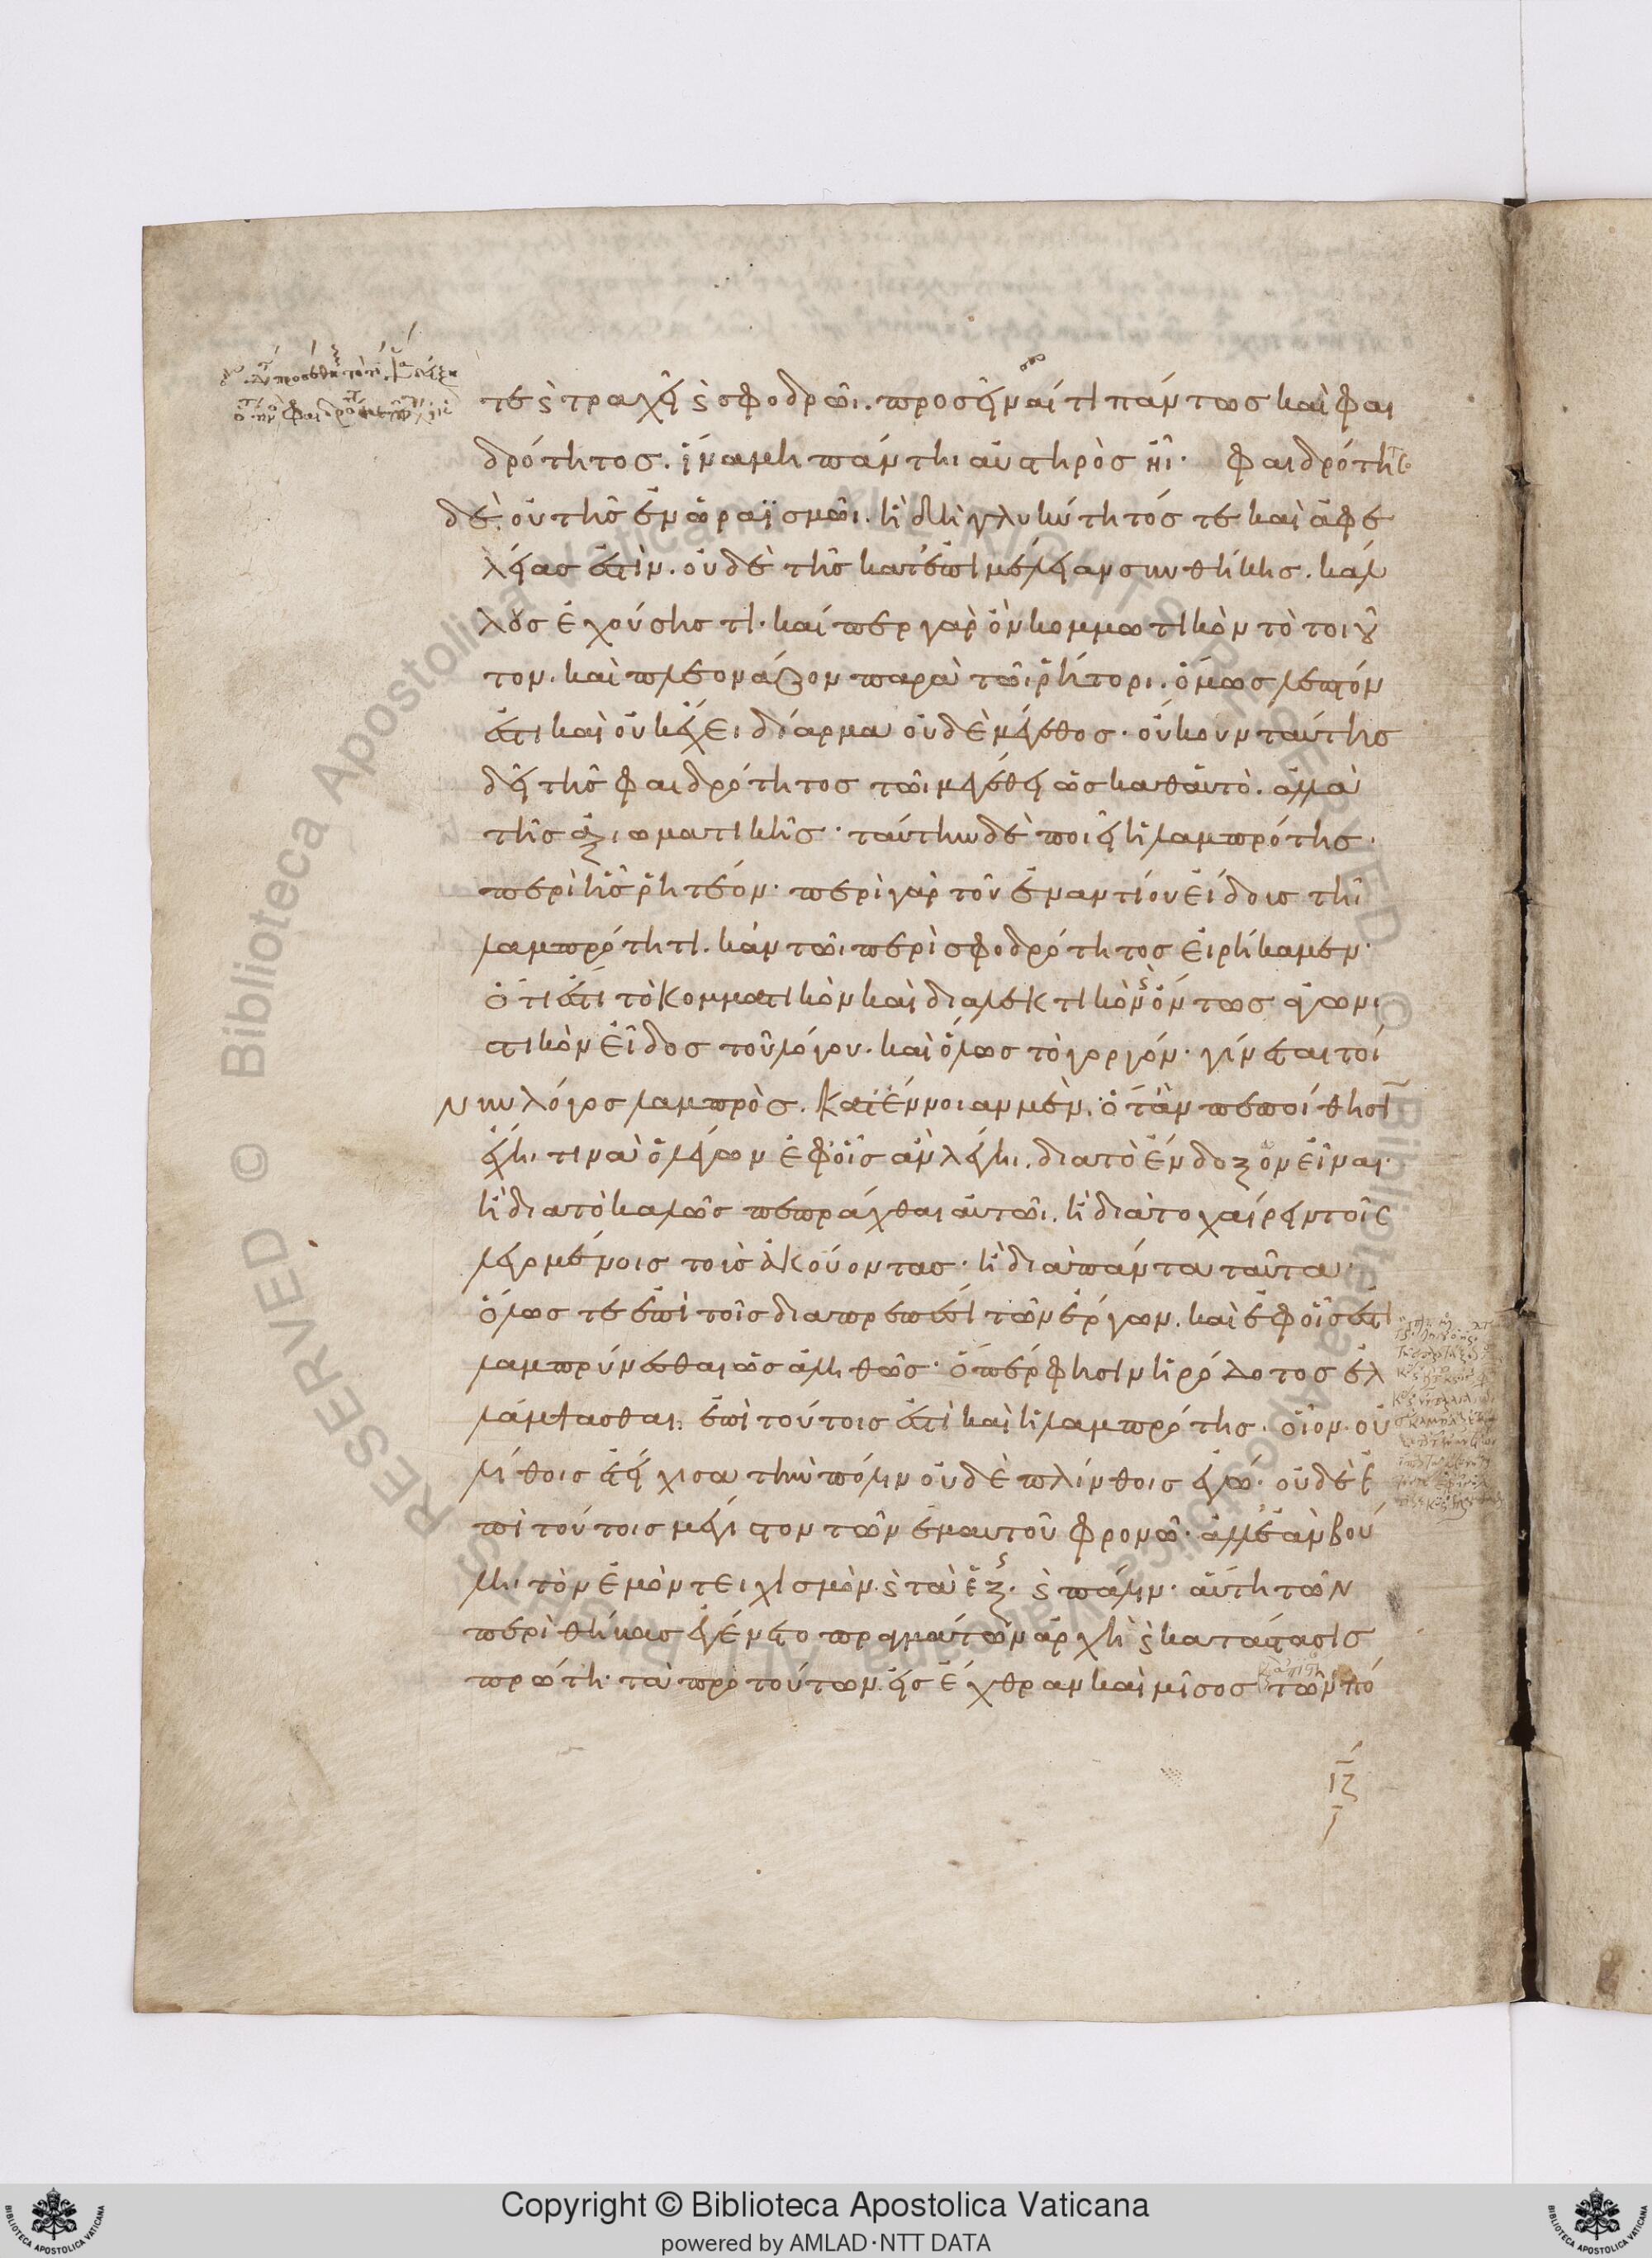 τε καὶ τραχεῖ καὶ σφοδρῶι. προσεῖναί τι πάντως καὶ φαι
δρότητος. ἵνα μὴ πάντη αὐστηρὸς ῆι. φαιδρότης
δὲ οὐ τῆς ἐν ὡραϊσμῶι. ἢ δὴ γλυκύτητός τε καὶ ἀφε
λείας ἐστὶν. οὐδὲ τῆς κατ' ἐπιμέλειαν συνθήκης. κάλ
λους ἐχούσης τι. καίπερ γὰρ ὂν κομμωτικὸν τὸ τοιοῦ
τον. καὶ πλεονάζον παρὰ τῶι ῥήτορι. ὅμως λεπτόν
ἐστι καὶ οὐκ ἔχει δίαρμα οὐδὲ μέγεθος. οὔκουν ταύτης
δεῖ τῆς φαιδρότητος τῶι μεγέθει ὡς καθαυτὸ. ἀλλὰ
τῆς ἀξιωματικῆς. ταύτην δὲ ποιεῖ ἡ λαμπρότης.
περὶ ἧς ῥητέον. περὶ γὰρ τοῦ ἐναντίου εἴδους τῆ
λαμπρότητι. κἀν τῶι περὶ σφοδρότητος εἰρήκαμεν.
ὅτι ἐστὶ τὸ κομματικὸν καὶ διαλεκτικὸν καὶ ὄντως ἀγωνι
στικὸν εἶδος τοῦ λόγου. καὶ ὅλως τὸ γοργόν. γίνεται τοί
νυν λόγος λαμπρὸς. κατ' ἔννοιαν μὲν. ὅταν πεποίθησι
ἔχηι τινὰ ὁ λέγων ἐφ' οἷς ἂν λέγηι. διὰ τὸ ἔνδοξον εἶναι.
ἢ διὰ τὸ καλῶς πεπρᾶχθαι αὐτῶι. ἢ διὰ τὸ χαίρειν τοῖς
λεγομένοις τοὺς ἀκούοντας. ἢ διὰ πάντα ταῦτα.
ὅλως τε ἐπὶ τοῖς διαπρεπέσι τῶν ἔργων. καὶ ἐφ' οἷς ἐστὶ
λαμπρύνεσθαι ὡς ἀληθῶς. ὅπερ φησὶν ἡρόδοτος ἐλ
λάμψασθαι. ἐπὶ τούτοις ἐστὶ καὶ ἡ λαμπρότης. οἷον. οὐ
λίθοις ἐτείχισα τὴν πόλιν οὐδὲ πλίνθοις ἐγώ. οὐδ' ἐ
πὶ τούτοις μέγιστον τῶν ἐμαυτοῦ φρονῶ. ἀλλ' ἐὰν βού
λη τὸν ἐμὸν τειχισμὸν καὶ τὰ ἑξ. καὶ πάλιν. αὕτη τῶν
περὶ θήβας ἐγένετο πραγμάτων ἀρχὴ καὶ κατάστασις
πρώτη. τὰ πρὸ τούτων εἰς ἔχθραν καὶ μῖσος τῶν πό
ιζ